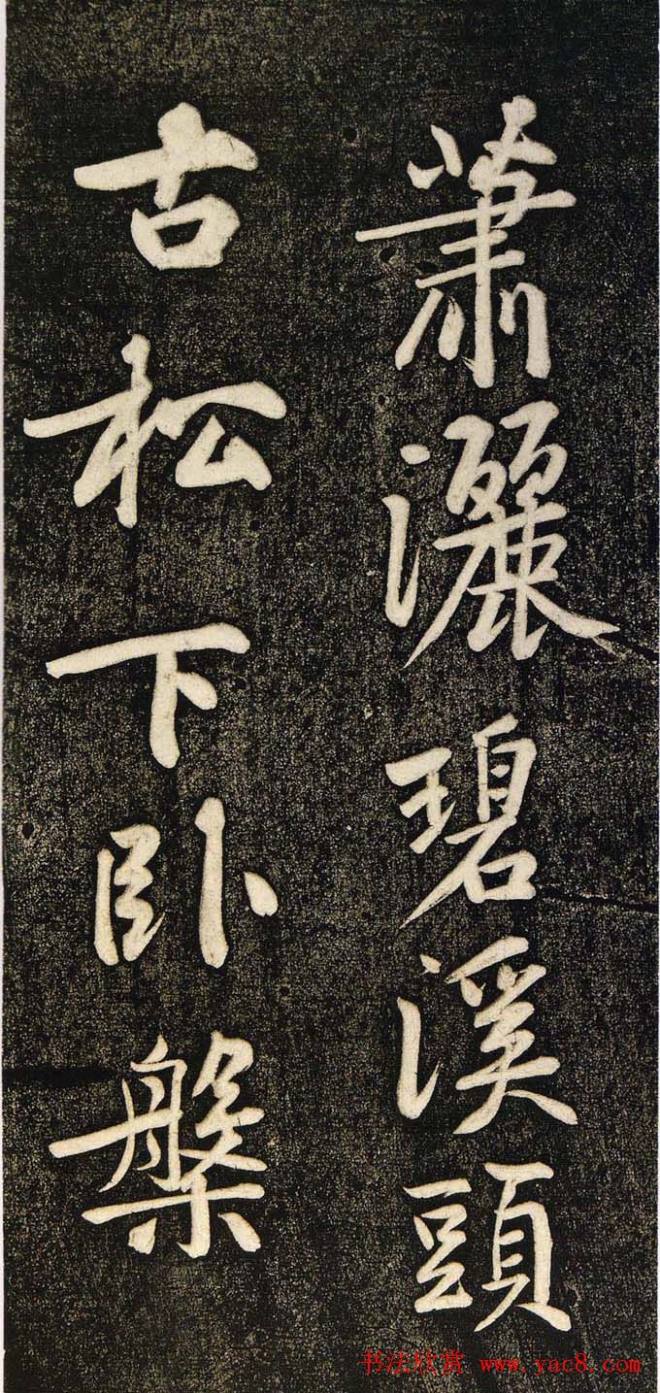 蕭灑碧溪頭
古松下卧槃
书法欣赏 www.yac8.com